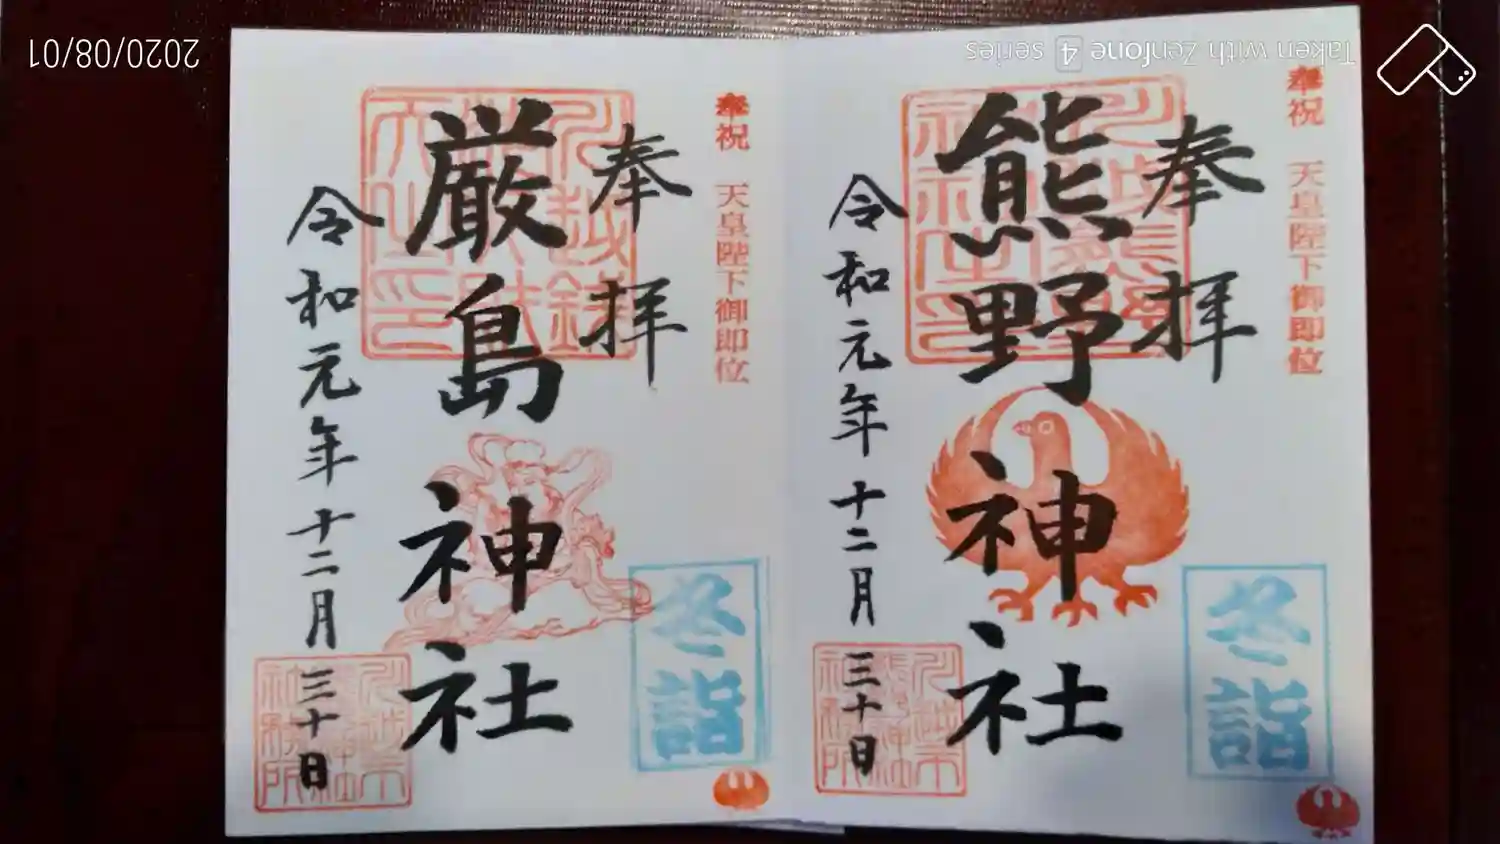 奉祝 天皇陛下御即位
奉拝
熊野神社
令和元年十二月三十日
冬詣
奉祝 天皇陛下御即位
奉拝
厳島神社
令和元年十二月三十日
冬詣
Taken with Zenfone 4 series
2020/08/01